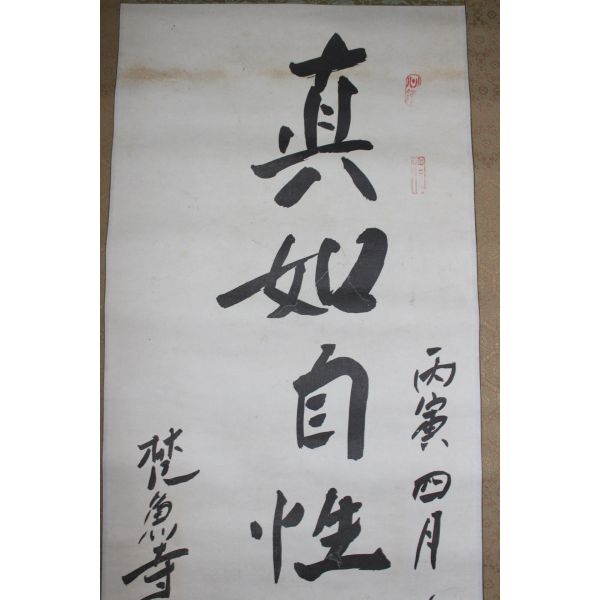 丙寅四月
真如自性
梵魚寺